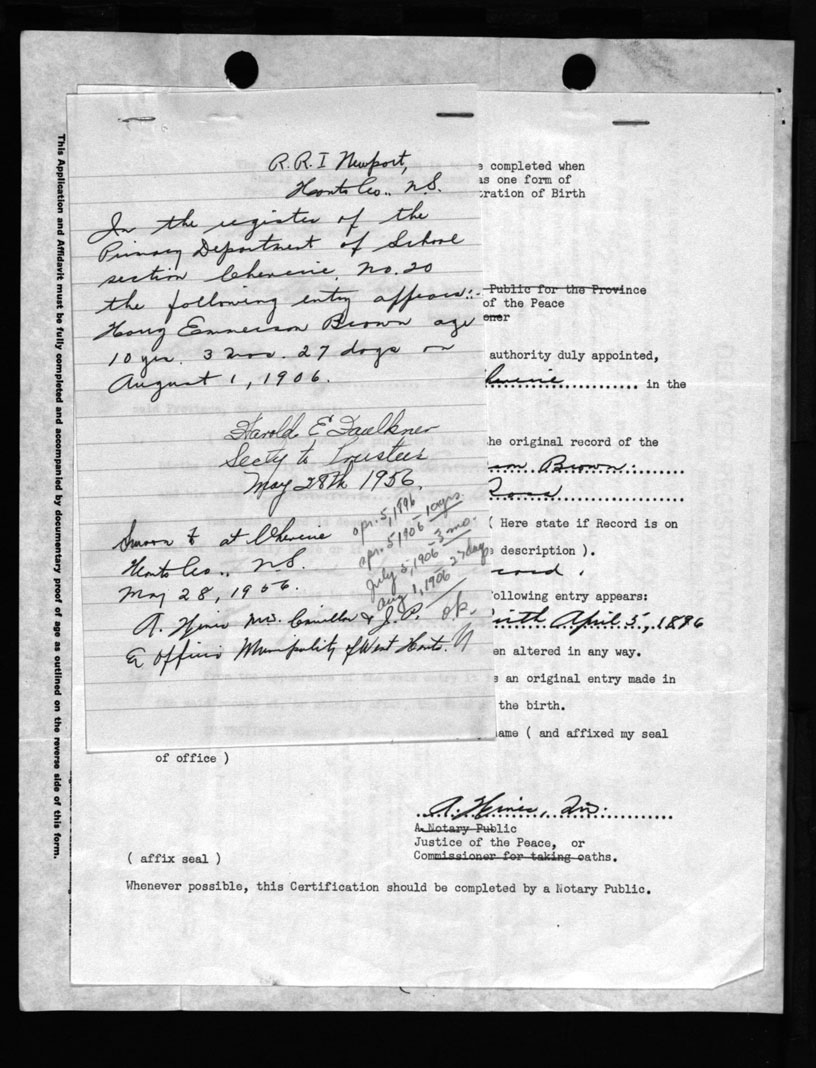 This Application and Affidavit must be fully completed and accompanied by documentary proof of age as outlined on the reverse side of this form.
R.R. 1 Newport,
Hants Co., N.S.
In the register of the
Primary Department of School
section Cheverie, No. 20
the following entry appears:-
Harry Emmerson Brown age
10 yrs. 3 mos. 27 days on
August 1, 1906.
Harold E Faulkner
Secty to Trustees
May 28th 1956.
Sworn to at Cheverie
Hants Co., N.S.
May 28, 1956.
A. Hines Mun. Councillor & J.P.
Ex Officio Municipality of West Hants.
apr. 5, 1896
apr. 5 1906 - 10 yrs.
July 5, 1906 - 3 mo.
Aug 1, 1906 27 days
o.k.
e completed when
as one form of
ration of Birth
Public for the Province
of the Peace
oner
authority duly appointed,
in the
said Provin
he original record of the
son Brown:
Ross
( Here state if Record is on
description ).
cord.
following entry appears:
birth April 5, 1896
en altered in any way.
s an original entry made in
the birth.
ame ( and affixed my seal
of office )
A. Hines,
A Notary Public
Justice of the Peace, or
Commissioner for taking oaths.
( affix seal )
Whenever possible, this Certification should be completed by a Notary Public.